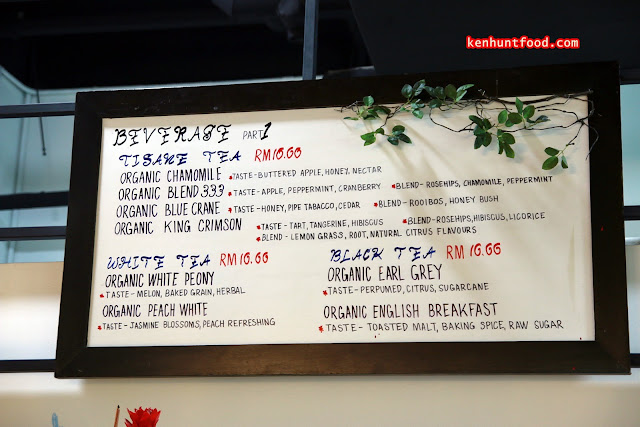 kenhuntfood.com
BEVERAGE PART 1
TISANE TEA RM10.00
ORGANIC CHAMOMILE *TASTE-BUTTERED APPLE, HONEY, NECTAR
ORGANIC BLEND 333 *TASTE-APPLE, PEPPERMINT, CRANBERRY *BLEND-ROSEHIPS, CHAMOMILE, PEPPERMINT
ORGANIC BLUE CRANE *TASTE-HONEY, PIPE TABACCO, CEDAR *BLEND-ROOIBOS, HONEY BUSH
ORGANIC KING CRIMSON *TASTE-TART, TANGERINE, HIBISCUS *BLEND-ROSEHIPS, HIBISCUS, LICORICE
*BLEND-LEMON GRASS, ROOT, NATURAL CITRUS FLAVOURS
WHITE TEA RM10.00
ORGANIC WHITE PEONY
*TASTE-MELON, BAKED GRAIN, HERBAL
ORGANIC PEACH WHITE
*TASTE-JASMINE BLOSSOMS, PEACH REFRESHING
BLACK TEA RM10.00
ORGANIC EARL GREY
*TASTE-PERFUMED, CITRUS, SUGARCANE
ORGANIC ENGLISH BREAKFAST
*TASTE-TOASTED MALT, BAKING SPICE, RAW SUGAR